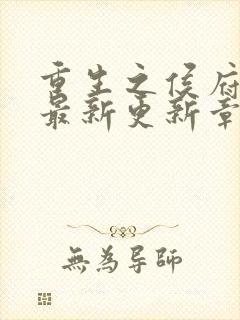 重生之侯府
最新更新章
無為导師